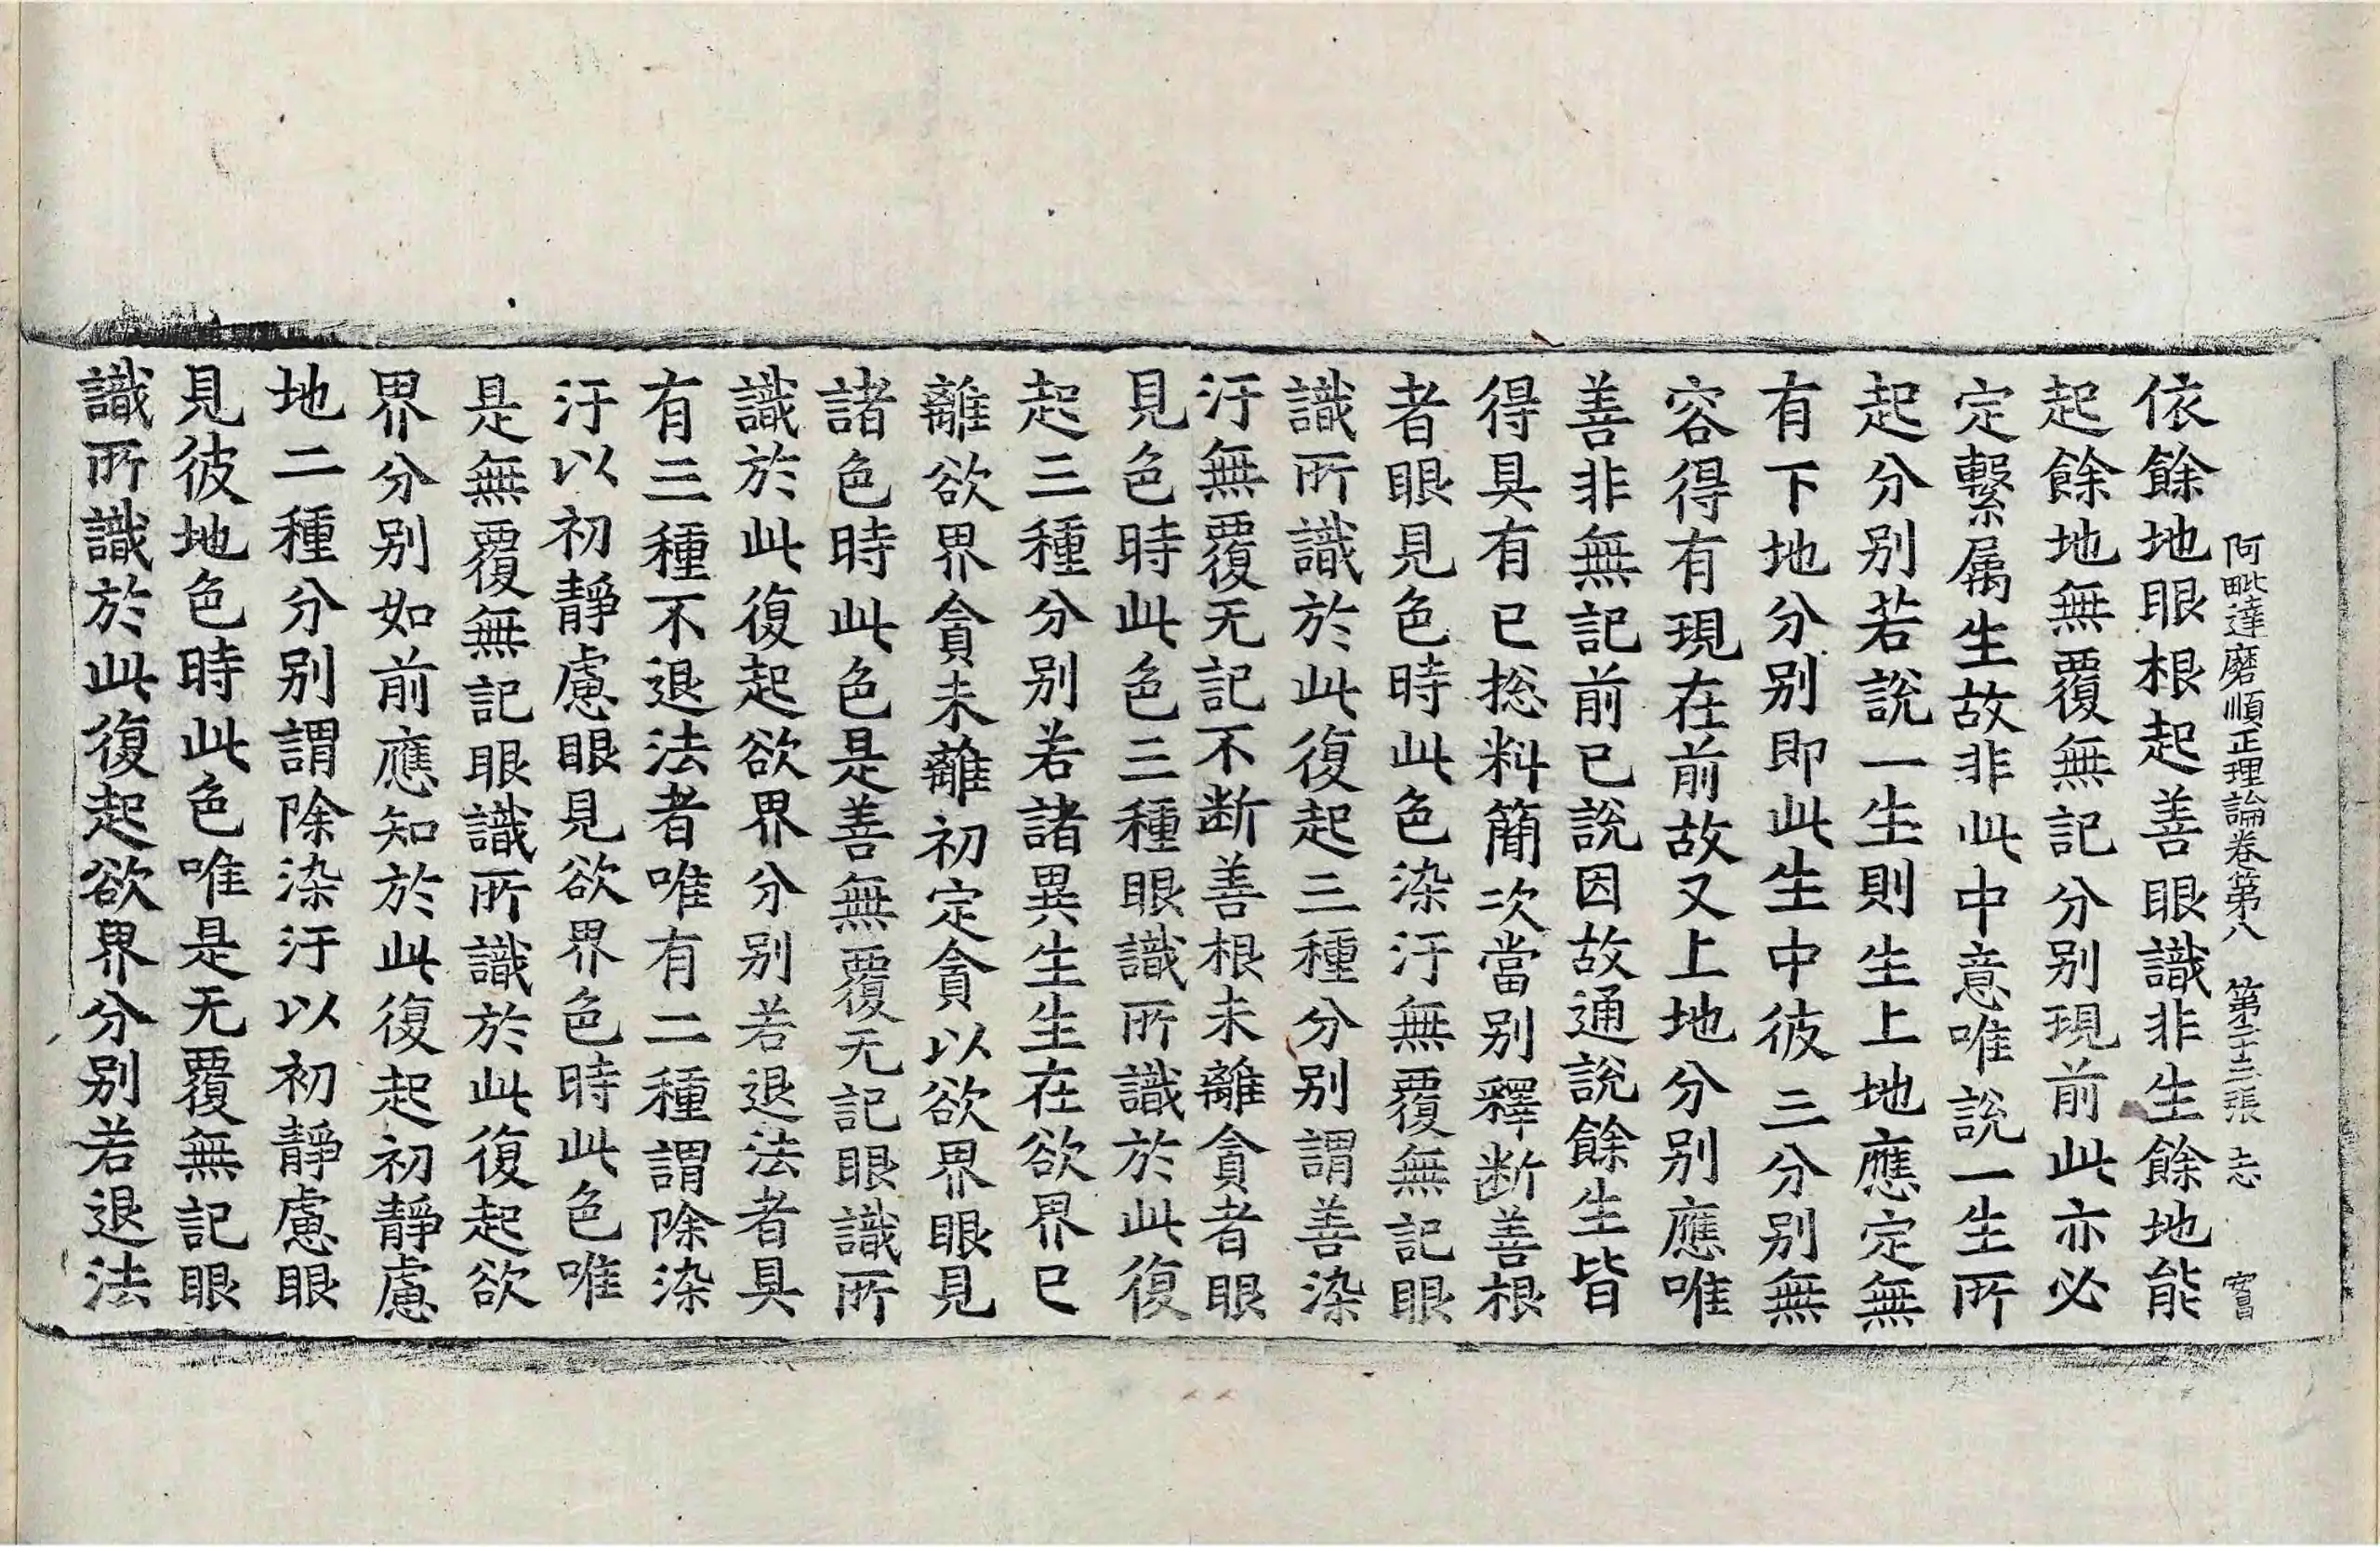 阿毗達磨順正理論卷第八 第二十三張 志
依餘地眼根起善眼識非生餘地能
起餘地無覆無記分别現前此亦必
定繫属生故非此中意唯說一生所
起分别若說一生則生上地應定無
有下地分别即此生中彼三分别無
容得有現在前故又上地分别應唯
善非無記前已說因故通說餘生皆
得具有已捴料簡次當别釋断善根
者眼見色時此色染汙無覆無記眼
識所識於此復起三種分别謂善染
汙無覆无記不断善根未離貪者眼
見色時此色三種眼識所識於此復
起三種分别若諸異生生在欲界已
離欲界貪未離初定貪以欲界眼見
諸色時此色是善無覆无記眼識所
識於此復起欲界分别若退法者具
有三種不退法者唯有二種謂除染
汙以初靜慮眼見欲界色時此色唯
是無覆無記眼識所識於此復起欲
界分别如前應知於此復起初靜慮
地二種分别謂除染汙以初靜慮眼
見彼地色時此色唯是无覆無記眼
識所識於此復起欲界分别若退法